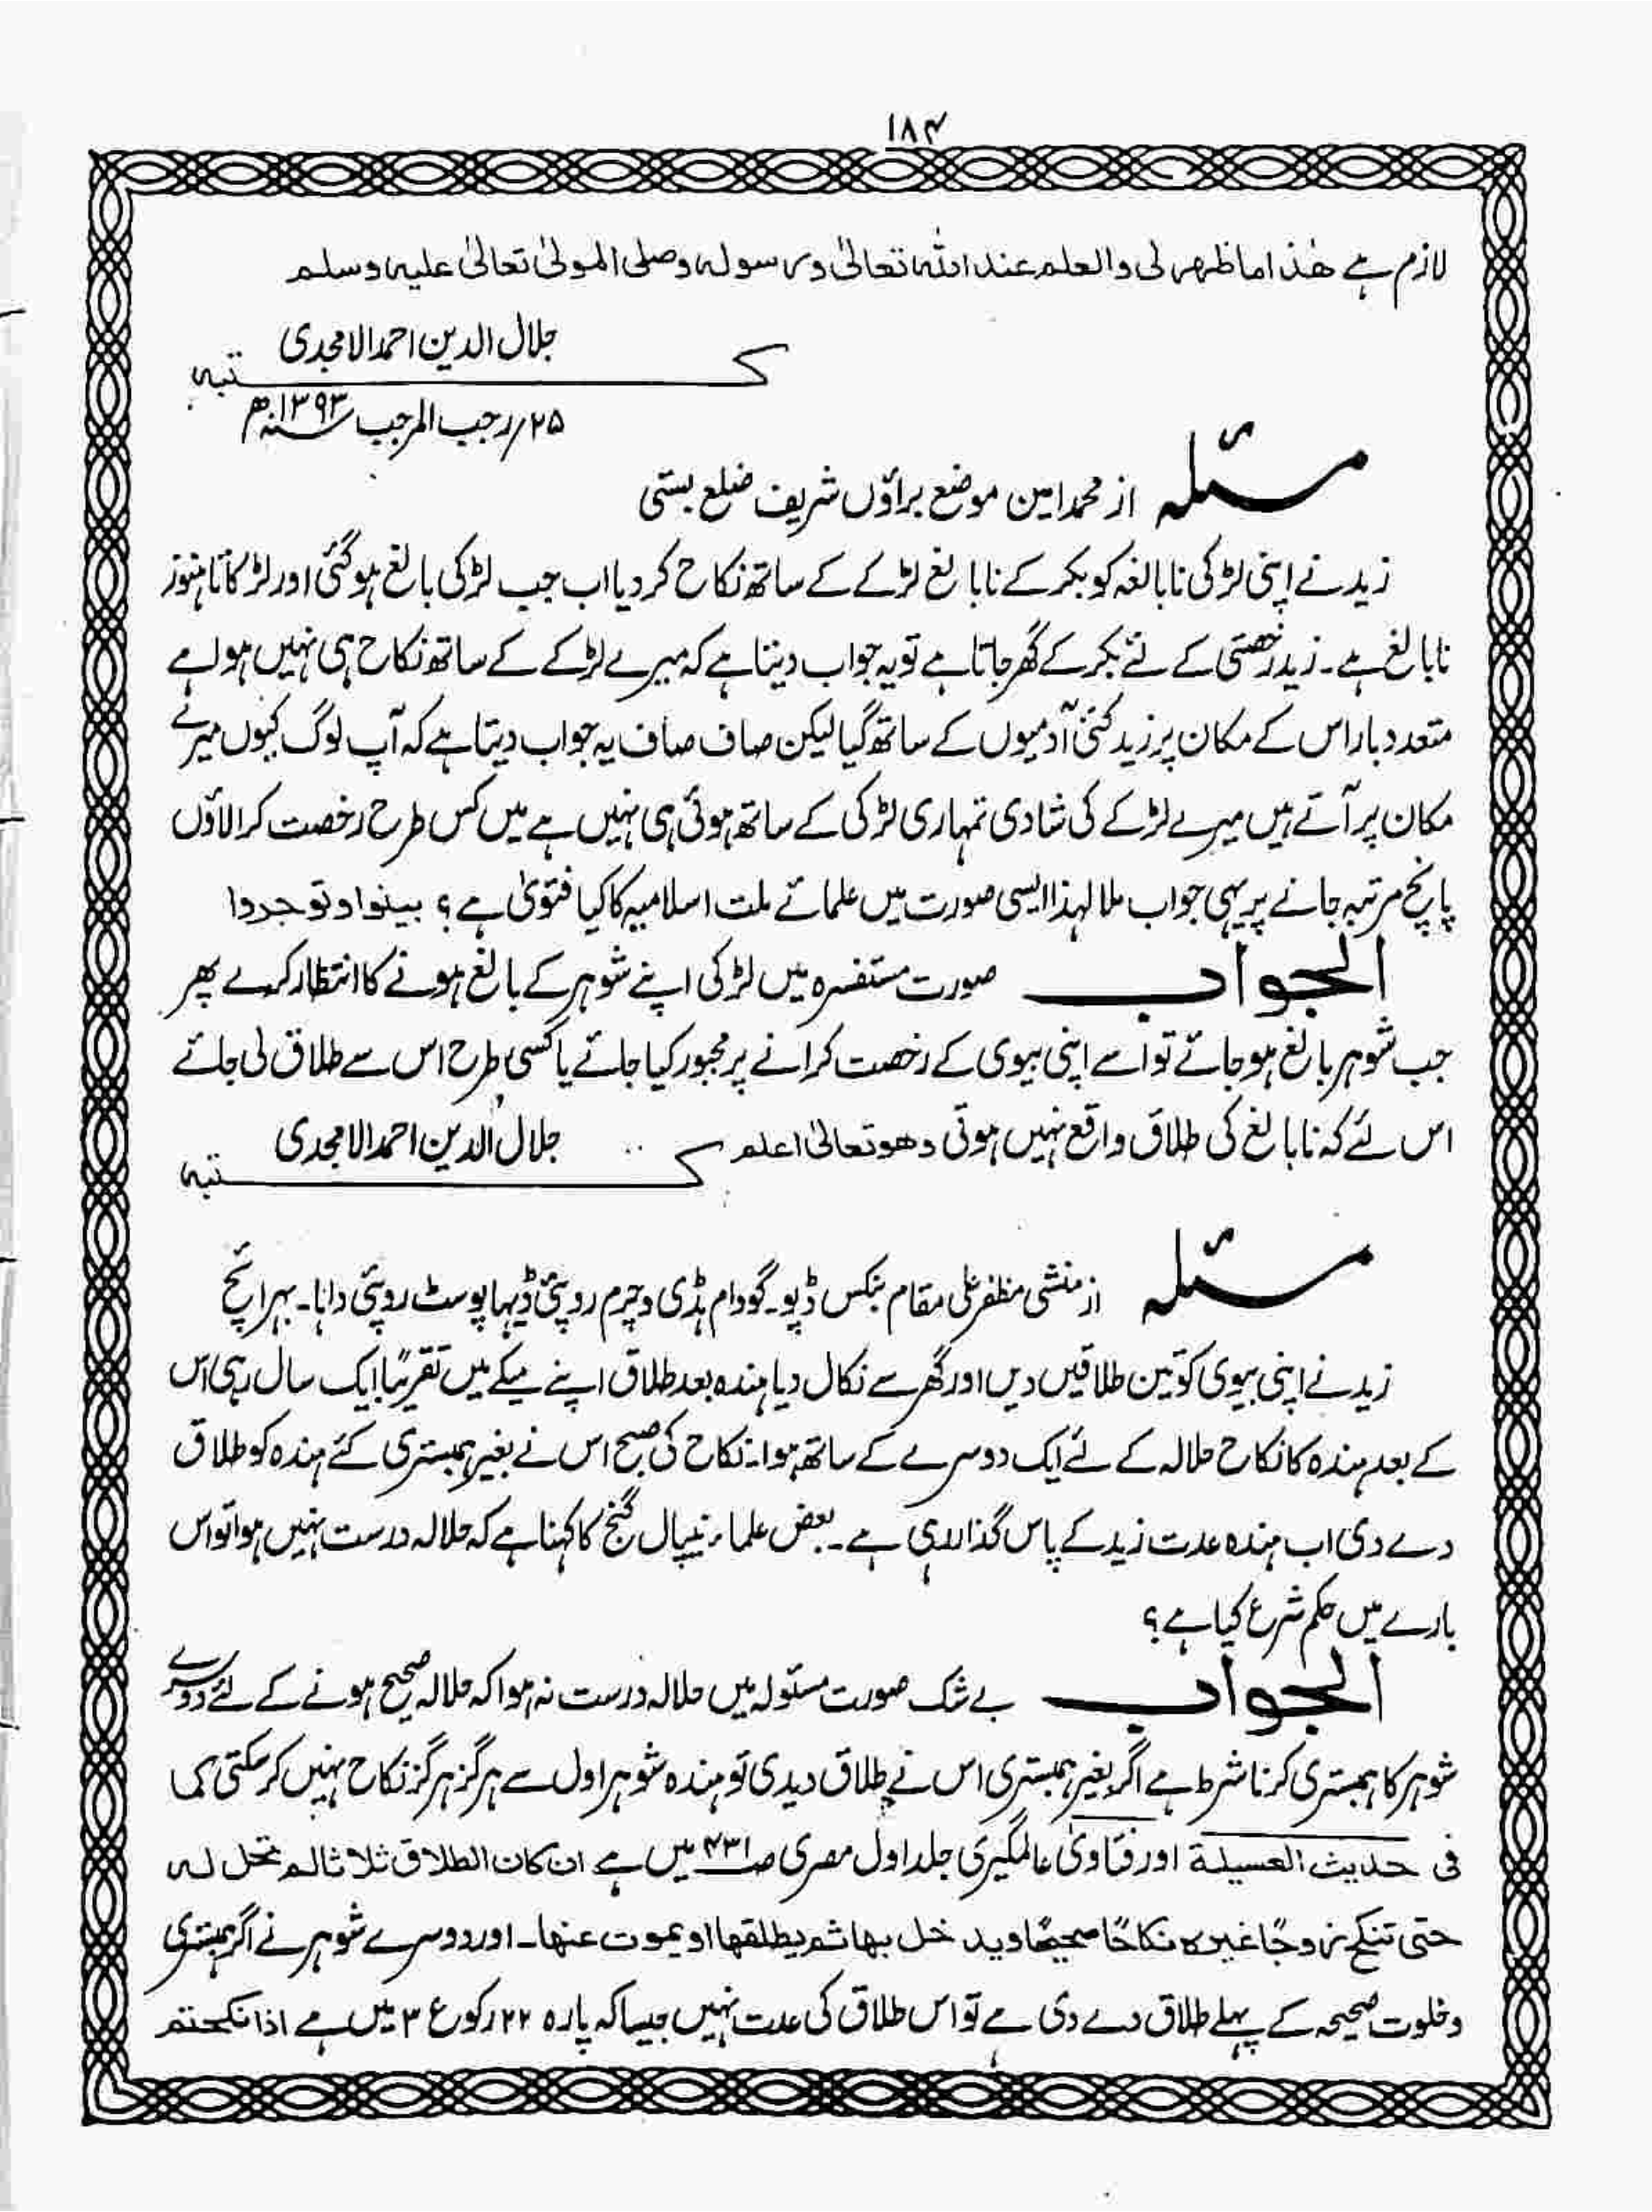 ۱۸۴
لازم ہے ھٰذا ماظھر لی والعلم عند اللہ تعالیٰ ورسولہ وصلی المولیٰ تعالیٰ علیہ وسلم
جلال الدین احمد الامجدی
کتبہ
۲۵/رجب المرجب ۱۳۹۳ھ
مسئلہ از محمد امین موضع براؤں شریف ضلع بستی
زید نے اپنی لڑکی نابالغہ کو بکر کے نابالغ لڑکے کے ساتھ نکاح کر دیا اب جب لڑکی بالغ ہوگئی اور لڑکا تا ہنوز
نابالغ ہے۔ زید رخصتی کے لئے بکر کے گھر جاتا ہے تو یہ جواب دیتا ہے کہ میرے لڑکے کے ساتھ نکاح ہی نہیں ہوا ہے
متعدد بار اس کے مکان پر زید کئی آدمیوں کے ساتھ گیا لیکن صاف صاف یہ جواب دیتا ہے کہ آپ لوگ کیوں میرے
مکان پر آتے ہیں میرے لڑکے کی شادی تمہاری لڑکی کے ساتھ ہوئی ہی نہیں ہے میں کس طرح رخصت کرالاؤں
پانچ مرتبہ جانے پر یہی جواب ملا لہذا ایسی صورت میں علمائے ملت اسلامیہ کا کیا فتویٰ ہے؟ بینوا وتوجروا
الجواب صورت مستفسرہ میں لڑکی اپنے شوہر کے بالغ ہونے کا انتظار کرے پھر
جب شوہر بالغ ہو جائے تو اسے اپنی بیوی کے رخصت کرانے پر مجبور کیا جائے یا کسی طرح اس سے طلاق لی جائے
اس لئے کہ نابالغ کی طلاق واقع نہیں ہوتی وھو تعالیٰ اعلم جلال الدین احمد الامجدی
کتبہ
مسئلہ از منشی مظفر علی مقام بنکس ڈپو۔ گودام ہڈی وچرم روپئی ڈیہا پوسٹ روپئی داہا۔ بہرائچ
زید نے اپنی بیوی کو تین طلاقیں دیں اور گھر سے نکال دیا ہندہ بعد طلاق اپنے میکے میں تقریبًا ایک سال رہی اس
کے بعد ہندہ کا نکاح حلالہ کے لئے ایک دوسرے کے ساتھ ہوا۔ نکاح کی صبح اس نے بغیر ہمبستری کئے ہندہ کو طلاق
دے دی اب ہندہ عدت زید کے پاس گذار رہی ہے۔ بعض علماء نیپال گنج کا کہنا ہے کہ حلالہ درست نہیں ہوا تو اس
بارے میں حکم شرع کیا ہے؟
الجواب بے شک صورت مسئولہ میں حلالہ درست نہ ہوا کہ حلالہ صحیح ہونے کے لئے دوسرے
شوہر کا ہمبستری کرنا شرط ہے اگر بغیر ہمبستری اس نے طلاق دیدی تو ہندہ شوہر اول سے ہرگز ہرگز نکاح نہیں کر سکتی کما
فی حدیث العسیلة اور فتاویٰ عالمگیری جلد اول مصری ص۴۳۱ میں ہے ان کان الطلاق ثلاثا لم تحل لہ
حتی تنکح زوجًا غیرہ نکاحًا صحیحًا وید خل بھا ثم یطلقھا او یموت عنھا۔ اور دوسرے شوہر نے اگر ہمبستری
وخلوت صحیحہ کے پہلے طلاق دے دی ہے تو اس طلاق کی عدت نہیں جیسا کہ پارہ ۲۲ رکوع ۳ میں ہے اذا نکحتم